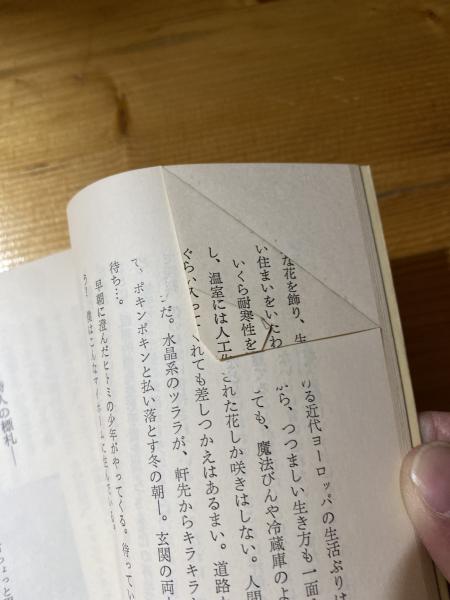 な花を飾り、生
る近代ヨーロッパの生活ぶりは
い住まいをいたわ
から、つつましい生き方も一面
いくら耐寒性を
ても、魔法びんや冷蔵庫のよ
し、温室には人工
された花しか咲きはしない。人間
れても差しつかえはあるまい。道路
だ。水晶系のツララが、軒先からキラキラ
て、ポキンポキンと払い落とす冬の朝―。玄関の両
待ち…。
早朝に澄んだヒトミの少年がやってくる。待ってい
う！ 僕はこんなマイホームに住んでいる。
人の標札――
ちょっと